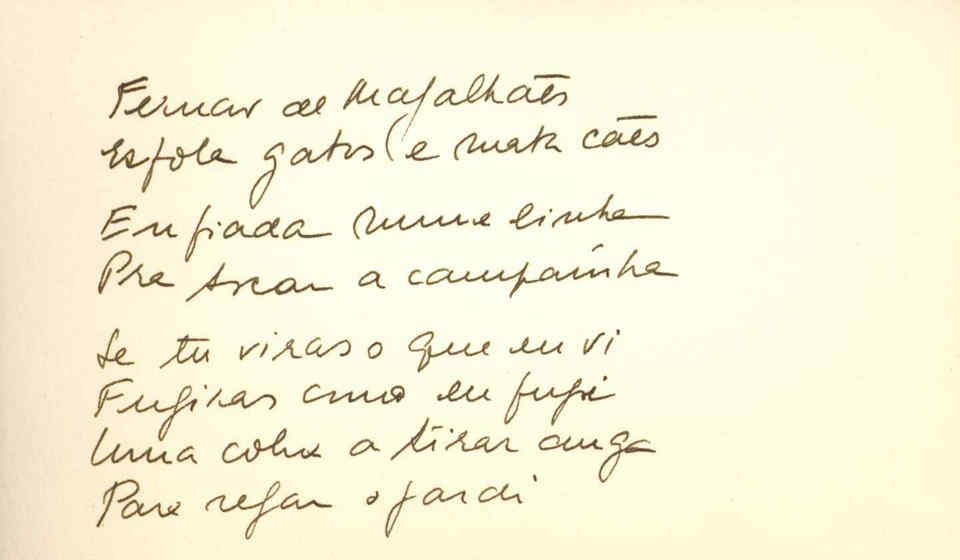 Fernão de Magalhães
Esfola gatos e mata cães
Enfiada numa linha
Pra tocar a campaínha
Se tu viras o que eu vi
Fugiras como eu fugi
Uma cobra a tirar auga
Para regar o jardi